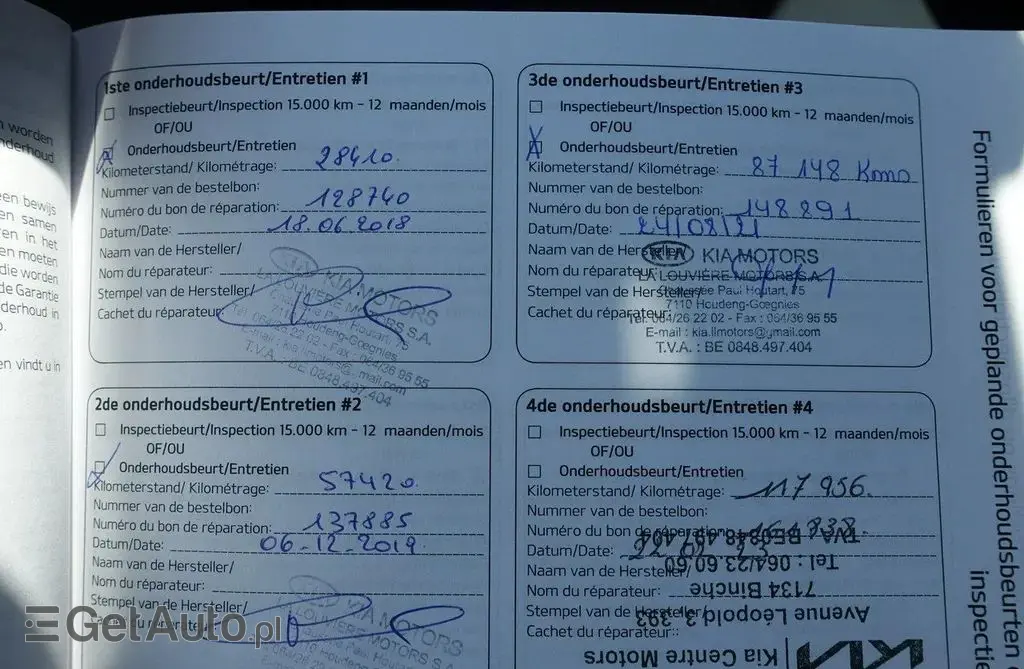 n worden
nderhoud
een bewijs
en samen
en in het
en moeten
die worden
de Garantie
derhoud in
en vindt u in
1ste onderhoudsbeurt/Entretien #1
Inspectiebeurt/Inspection 15.000 km - 12 maanden/mois
OF/OU
Onderhoudsbeurt/Entretien
Kilometerstand/ Kilométrage: 28410
Nummer van de bestelbon:
Numéro du bon de réparation: 128740
Datum/Date: 18.06.2018
Naam van de Hersteller/
Nom du réparateur:
Stempel van de Hersteller/
Cachet du réparateur:
KIA MOTORS
LA LOUVIÈRE MOTORS S.A.
Chaussée Paul Houtart, 75
7110 Houdeng-Goegnies
Tél. 064/26 22 02 - Fax : 064/36 95 55
E-mail : kia.llmotors@gmail.com
T.V.A. : BE 0848.497.404
2de onderhoudsbeurt/Entretien #2
Inspectiebeurt/Inspection 15.000 km - 12 maanden/mois
OF/OU
Onderhoudsbeurt/Entretien
Kilometerstand/ Kilométrage: 57420
Nummer van de bestelbon:
Numéro du bon de réparation: 137885
Datum/Date: 06-12-2019
Naam van de Hersteller/
Nom du réparateur:
Stempel van de Hersteller/
Cachet du réparateur:
KIA MOTORS
LA LOUVIÈRE MOTORS S.A.
3de onderhoudsbeurt/Entretien #3
Inspectiebeurt/Inspection 15.000 km - 12 maanden/mois
OF/OU
Onderhoudsbeurt/Entretien
Kilometerstand/ Kilométrage: 87 148
Nummer van de bestelbon:
Numéro du bon de réparation: 148891
Datum/Date: 24/08/21
Naam van de Hersteller/
Nom du réparateur:
Stempel van de Hersteller/
Cachet du réparateur:
KIA KIA MOTORS
LA LOUVIÈRE MOTORS S.A.
Chaussée Paul Houtart, 75
7110 Houdeng-Goegnies
Tél. 064/26 22 02 - Fax : 064/36 95 55
E-mail : kia.llmotors@gmail.com
T.V.A. : BE 0848.497.404
4de onderhoudsbeurt/Entretien #4
Inspectiebeurt/Inspection 15.000 km - 12 maanden/mois
OF/OU
Onderhoudsbeurt/Entretien
Kilometerstand/ Kilométrage: 117 956
Nummer van de bestelbon:
Numéro du bon de réparation:
Datum/Date:
Naam van de Hersteller/
Nom du réparateur:
Stempel van de Hersteller/
Cachet du réparateur::
KIA Kia Centre Motors
Avenue Léopold 3, 393
7134 Binche
Tel : 064/23.60.60
TVA BE0848 497 404
Formulieren voor geplande onderhoudsbeurten
inspectie
GetAuto.pl